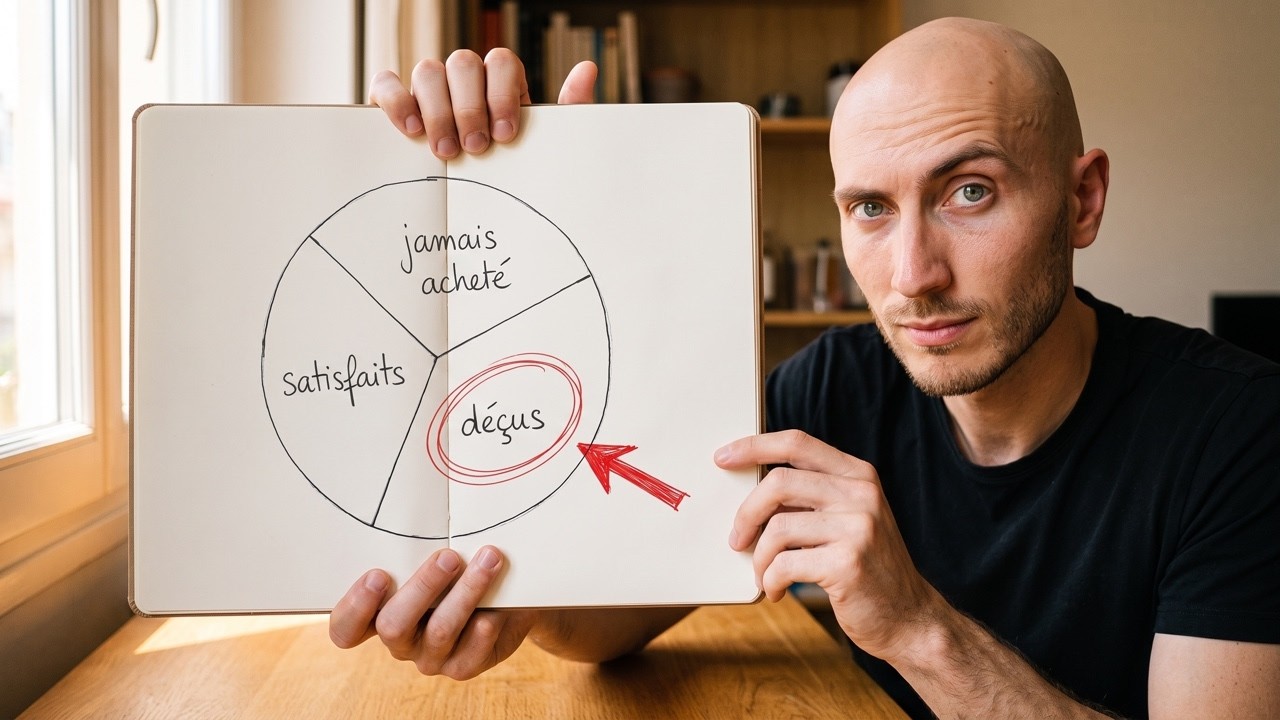 jamais
acheté
satisfaits
déçus